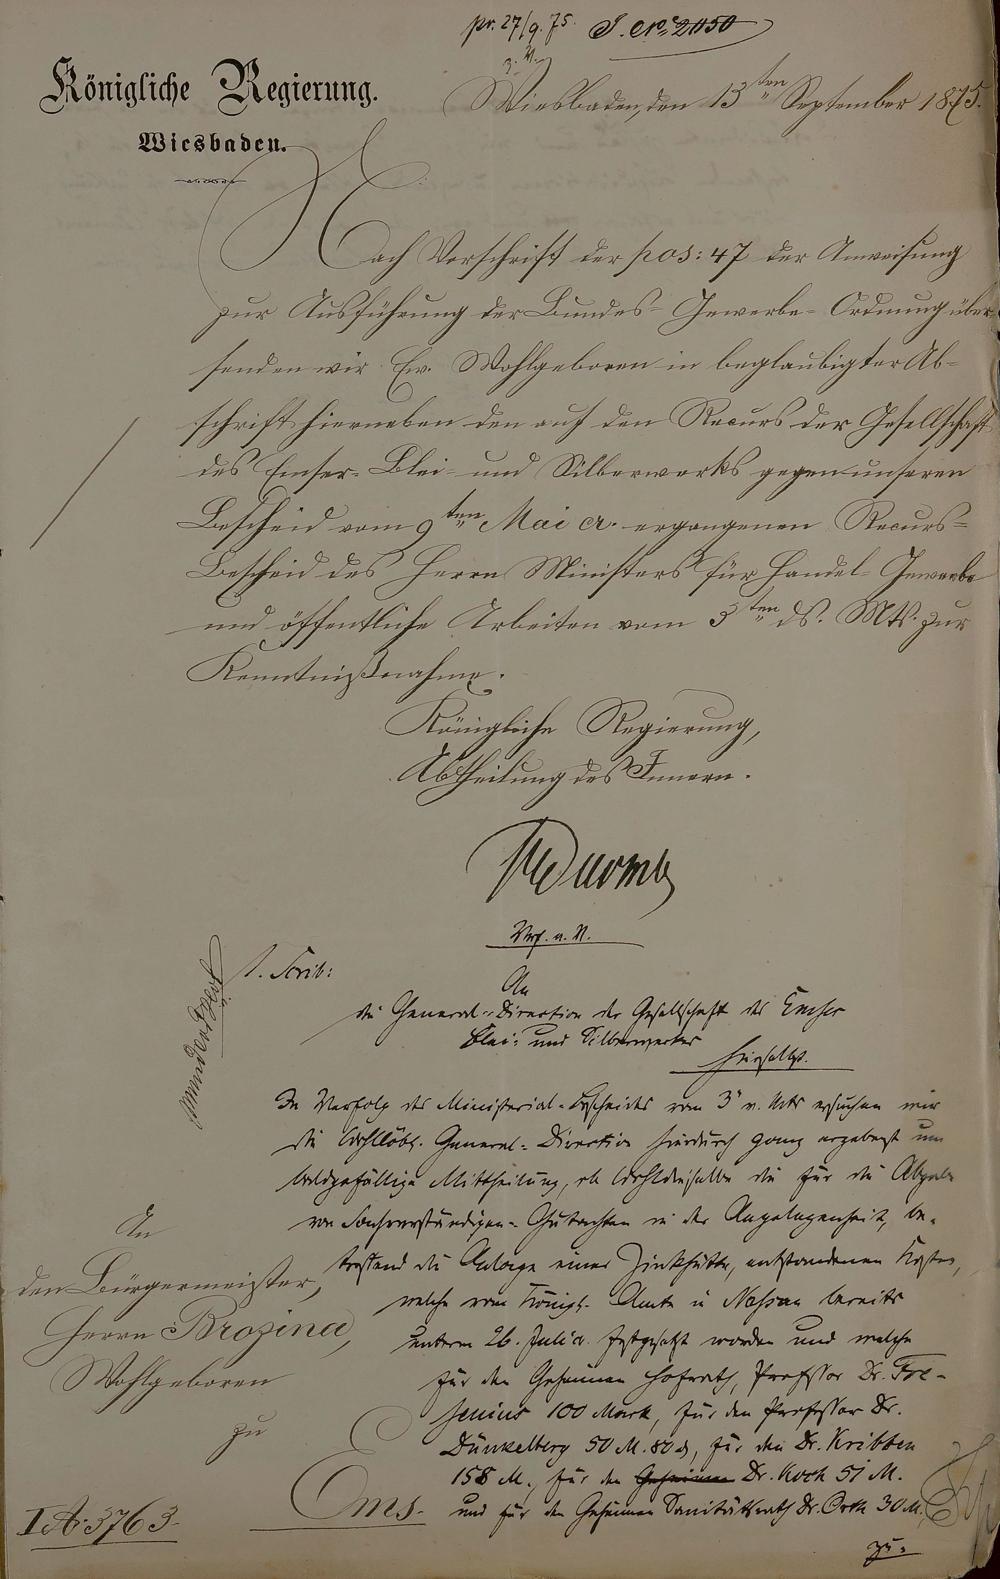 pr. 27/9. 75. J. No. 2050
Königliche Regierung.
Wiesbaden.
Wiesbaden, den 13ten September 1875.
Nach Vorschrift der pos: 47 der Anweisung
zur Ausführung der Bundes-Gewerbe-Ordnung über-
senden wir Ew. Wohlgeboren in beglaubigter Ab-
schrift hierneben den auf den Recurs der Gesellschaft
des Emser-Blei- und Silberwerks gegen unseren
Bescheid vom 9ten Mai cr. ergangenen Recurs-
Bescheid des Herrn Ministers für Handel-Gewerbe
und öffentliche Arbeiten vom 3ten ds. Mts. zur
Kenntnißnahme.
Königliche Regierung,
Abtheilung des Innern.
1. Scrib:
An
die General-Direction der Gesellschaft des Emser
Blei- und Silberwerkes
hierselbst.
In Verfolg des Ministerial-Bescheides vom 3ten v. Mts ersuchen wir
die Wohllöbl. General-Direction hierdurch ganz ergebenst um
baldgefällige Mittheilung, ob Wohldieselbe die für die Abgabe
von Sachverständigen-Gutachten in der Angelegenheit, be-
treffend die Anlage einer Zinkhütte, entstandenen Kosten,
welche vom Königl. Amte in Nassau bereits
unterm 26. Juli cr. festgesetzt worden und welche
für den Geheimen Hofrath, Professor Dr. Fre-
senius 100 Mark, für den Professor Dr.
Dünkelberg 50 M. 80 d, für den Dr. Kribben
158 M., für den Geheimen Dr. Koch 51 M.
und für den Geheimen Sanitätsrath Dr. Orth 30 M.
zu-
An
den Bürgermeister,
Herrn Brozina,
Wohlgeboren
zu
Ems.
I A. 3763.